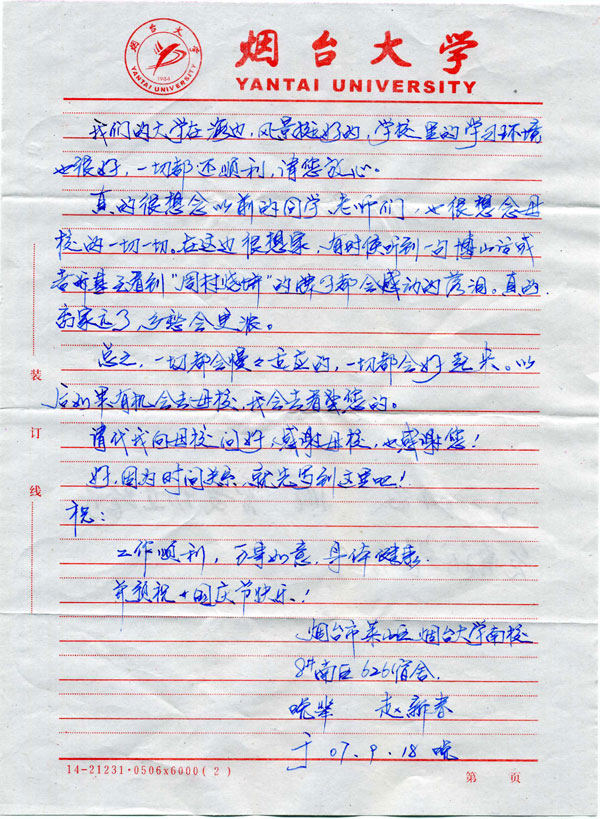 烟台大学
YANTAI UNIVERSITY
1984
烟台大学
YANTAI UNIVERSITY
我们的大学在海边,风景挺好的,学校里的学习环境
也很好,一切都还顺利,请您放心。
真的很想念以前的同学、老师们,也很想念母
校的一切一切。在这边很想家,有时候听到一句博山话或
者甚至看到“周村烧饼”的牌子都会感动的落泪。真的,
离家远了,乡愁会更浓。
总之,一切都会慢々适应的,一切都会好起来。以
后如果有机会去母校,我会去看望您的。
请代我向母校问好,感谢母校,也感谢您!
好,因为时间关系,就先写到这里吧!
祝:
工作顺利,万事如意,身体健康.
并预祝十一国庆节快乐!
烟台市莱山区烟台大学南校
8#南区626宿舍.
晚辈 赵新春
于07.9.18晚
装
订
线
14-21231·0506x6000(2)
第 页